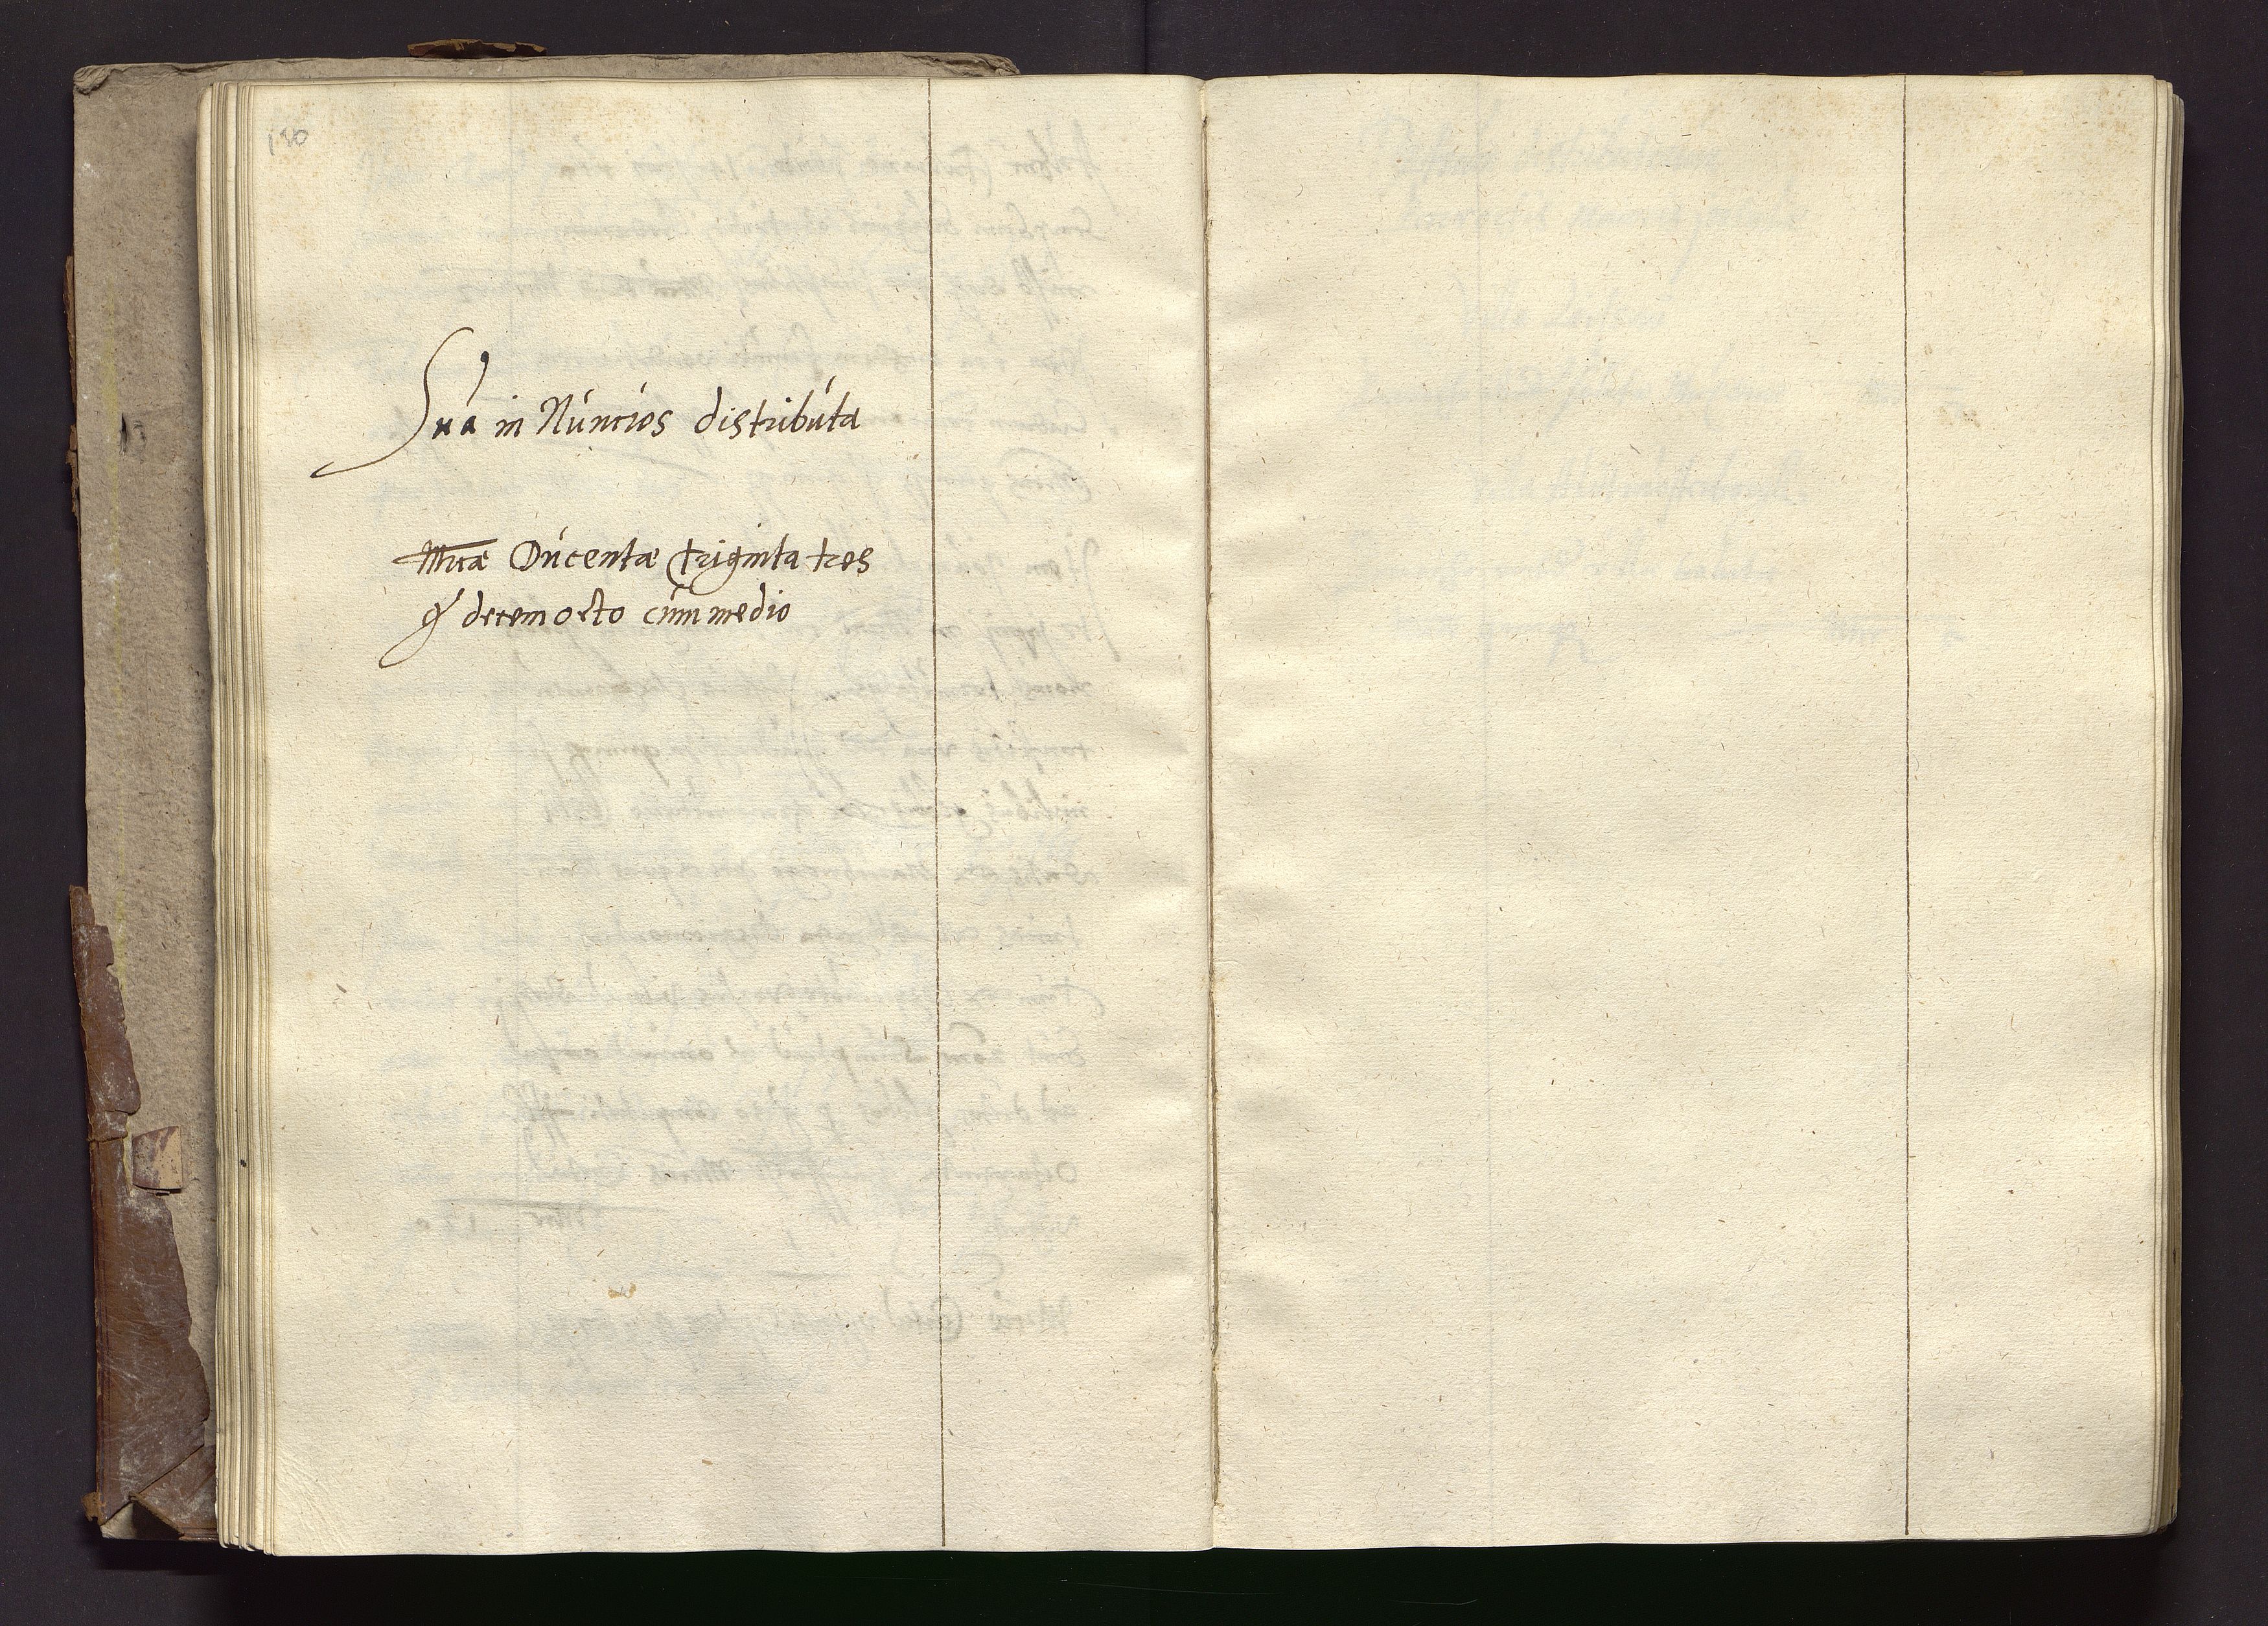 130
Sua in Núncios distribúta
Mrcæ Dúcentæ triginta tres
g decem octo cúm medio